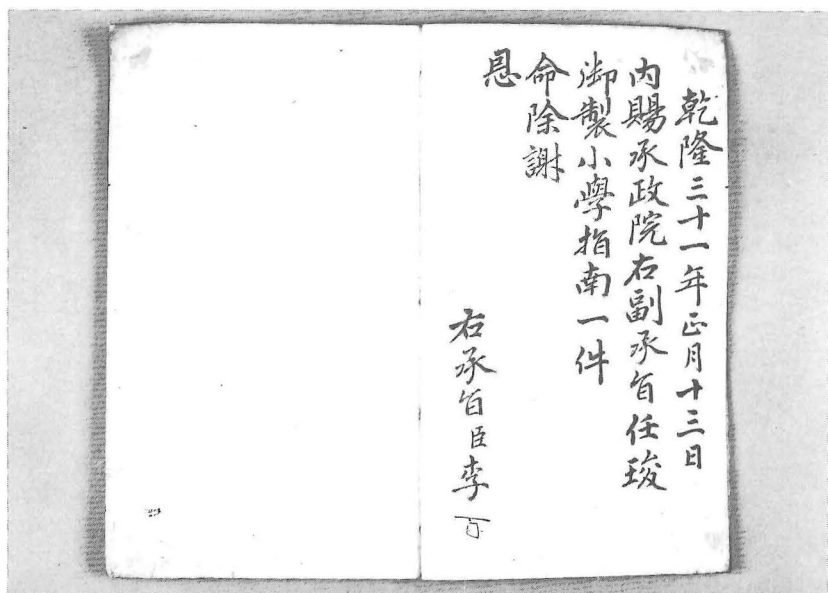 乾隆三十一年正月十三日
內賜承政院右副承旨任㻐
御製小學指南一件
命除謝
恩
右承旨臣李